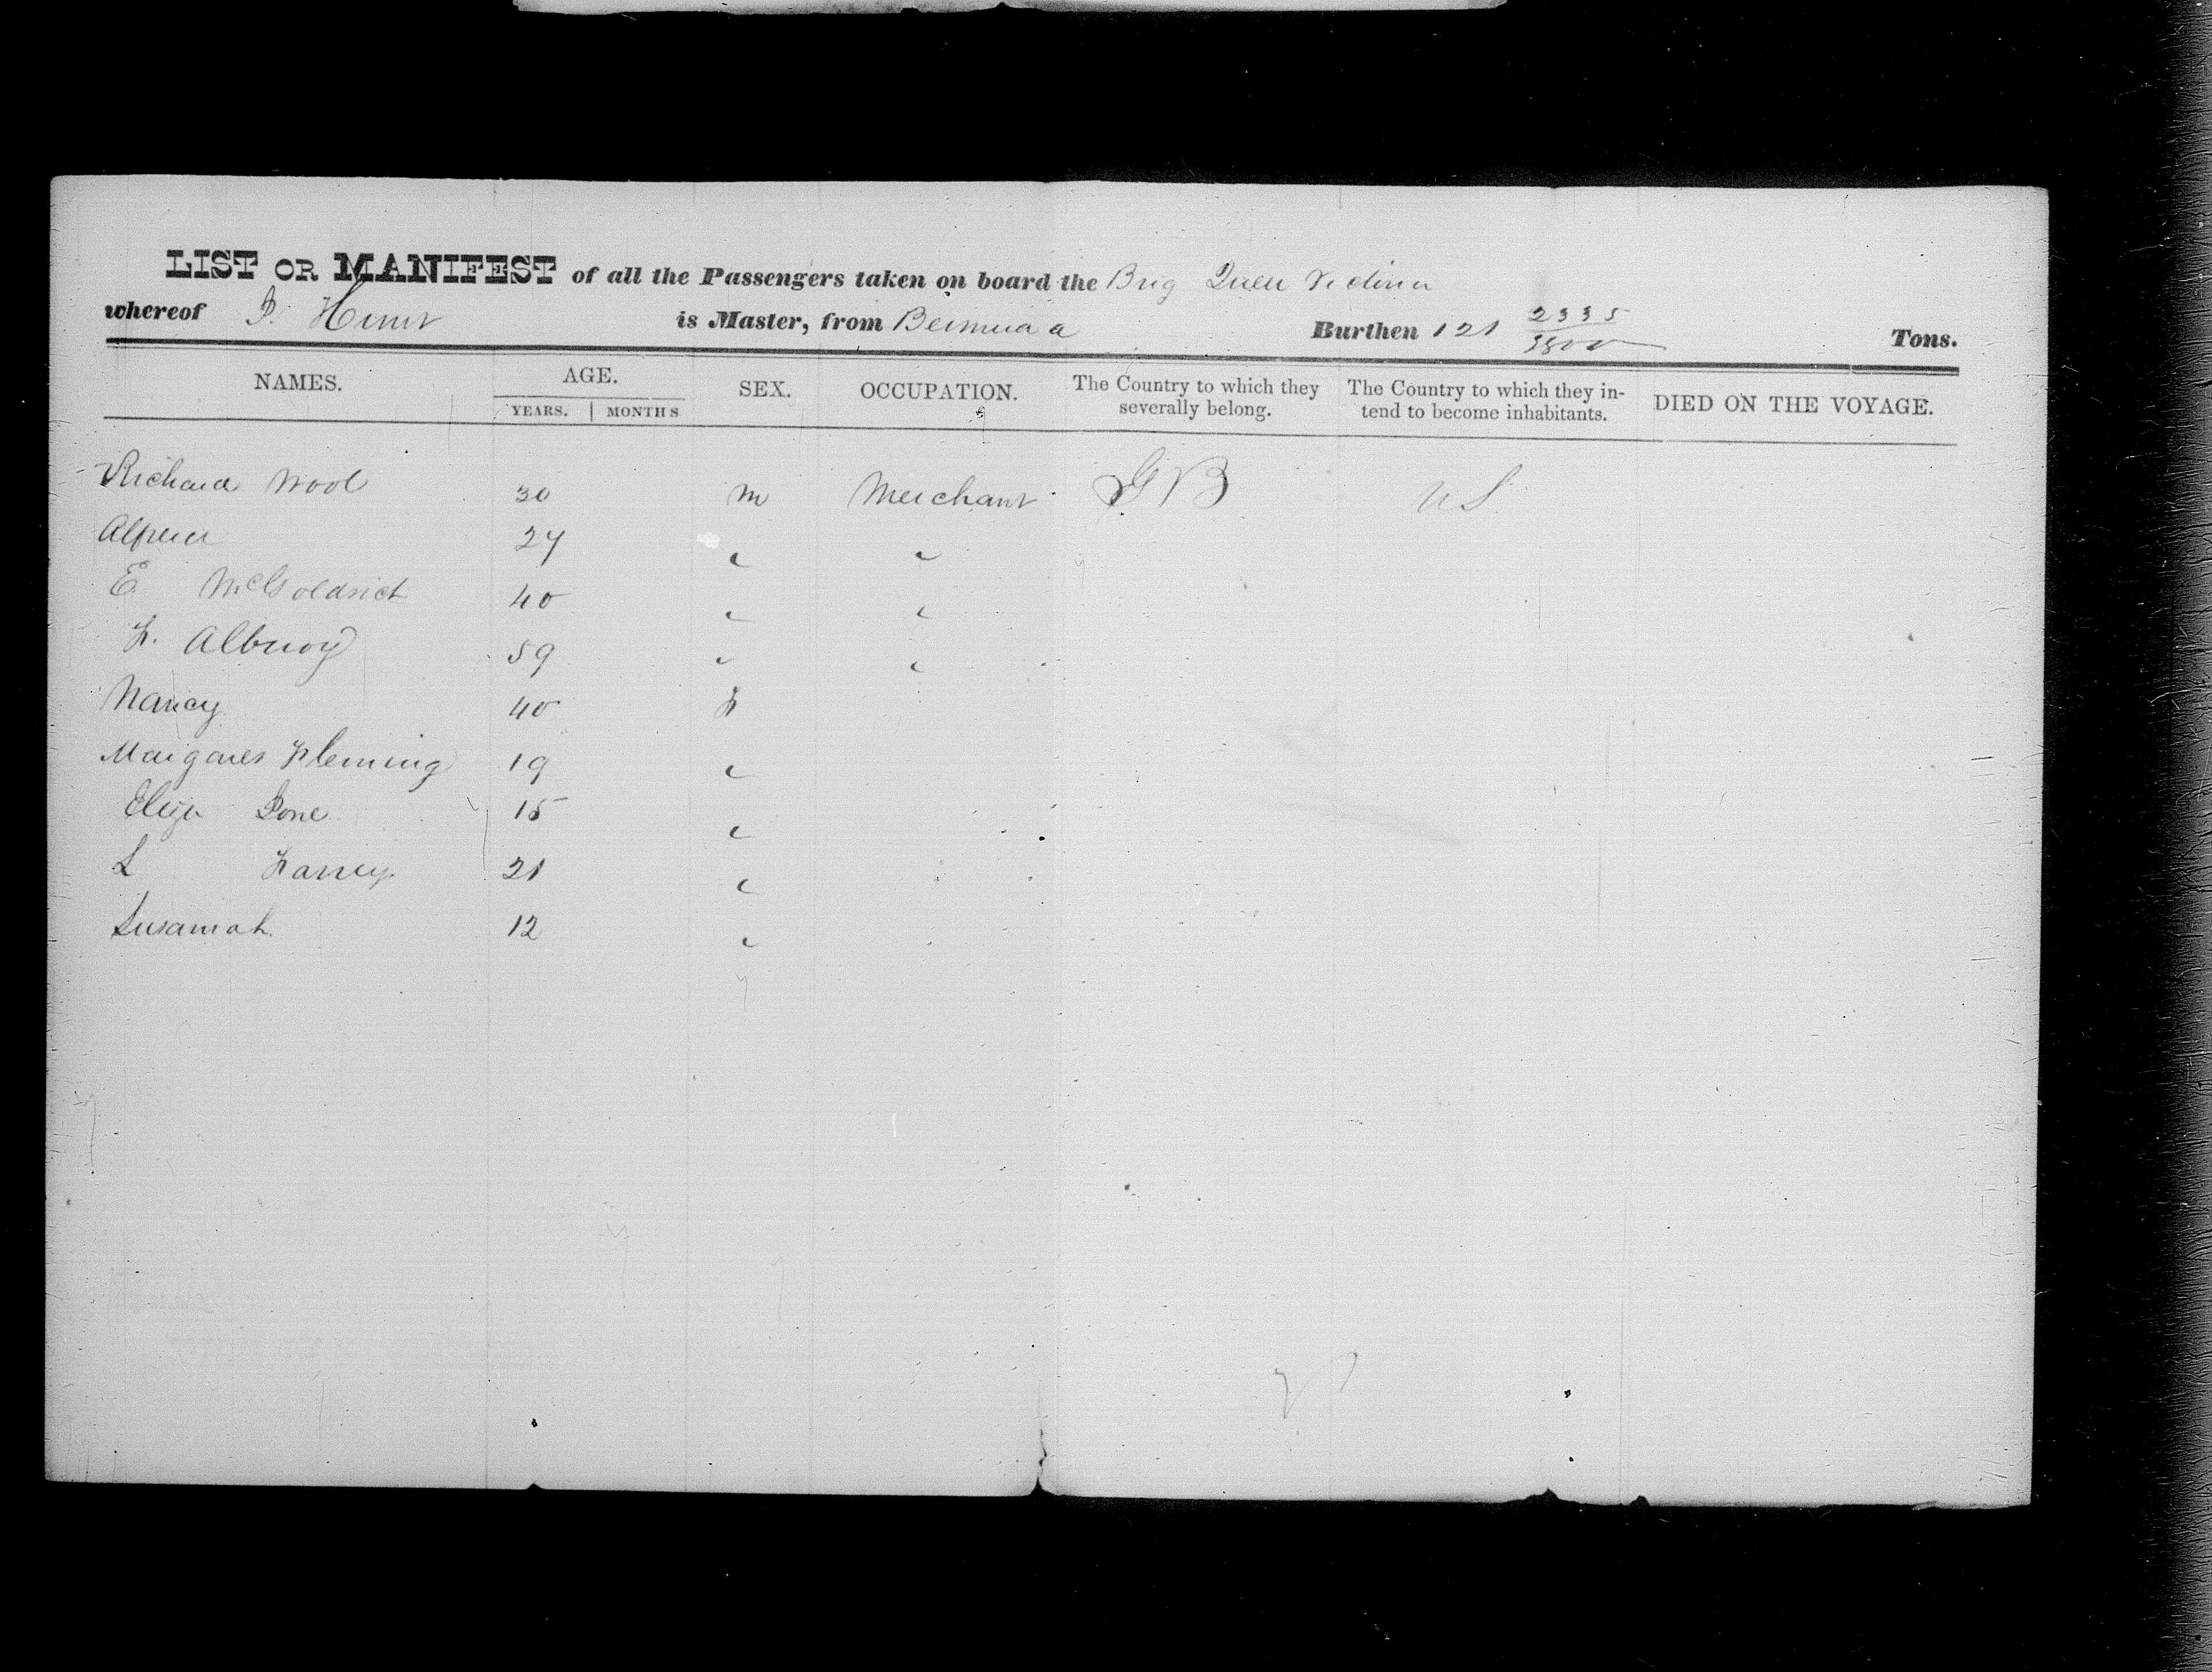 LIST OR MANIFEST of all the Passengers taken on board the Brig
whereof P. Hunt is Master, from Bermuda Burthen 121 2335/3500 Tons.
NAMES. AGE. SEX. OCCUPATION. The Country to which they severally belong. The Country to which they intend to become inhabitants. DIED ON THE VOYAGE.
YEARS. MONTHS
Richard Wool 30 m Merchant GB US
24 " "
E McGoldrick 40 " "
F. Albuoy 59 " "
Nancy 40 F
Margaret Fleming 19 "
Eliza 15 "
L 21 "
Susannah 12 "